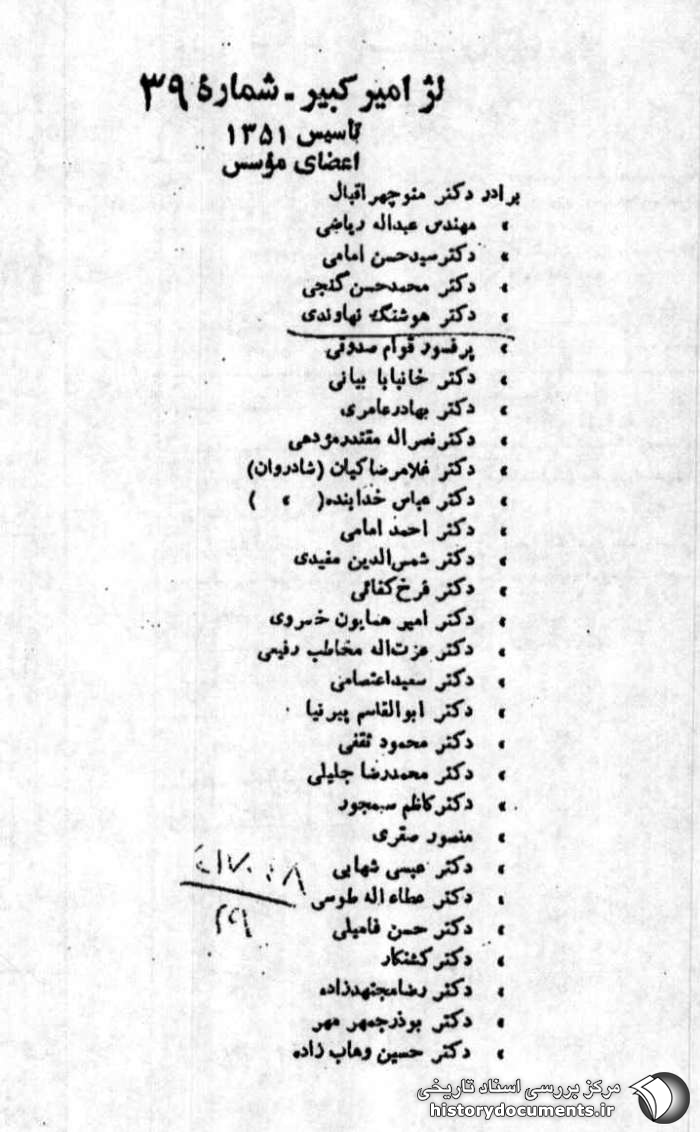 لژ امیر کبیر - شمارهٔ ۳۹
تاسیس ۱۳۵۱
اعضای مؤسس
برادر دکتر منوچهر اقبال
» مهندس عبداله ریاضی
» دکتر سیدحسن امامی
» دکتر محمدحسن گنجی
» دکتر هوشنگ نهاوندی
» پرفسور قوام صدوقی
» دکتر خانبابا بیانی
» دکتر بهادر عامری
» دکتر نصراله مقتدر مژدهی
» دکتر غلامرضا کیان (شادروان)
» دکتر عباس خدابنده ( » )
» دکتر احمد امامی
» دکتر شمس‌الدین مفیدی
» دکتر فرخ کفائی
» دکتر امیر همایون خسروی
» دکتر عزت‌اله مخاطب رفیعی
» دکتر سعید اعتصامی
» دکتر ابوالقاسم پیرنیا
» دکتر محمود ثقفی
» دکتر محمدرضا جلیلی
» دکتر کاظم سیمجور
» منصور صقری
» دکتر عیسی شهابی
» دکتر عطاءاله طوسی
» دکتر حسن فامیلی
» دکتر کشتکار
» دکتر رضا مجتهدزاده
» دکتر بوذرجمهر مهر
» دکتر حسین وهاب زاده
مرکز بررسی اسناد تاریخی
historydocuments.ir